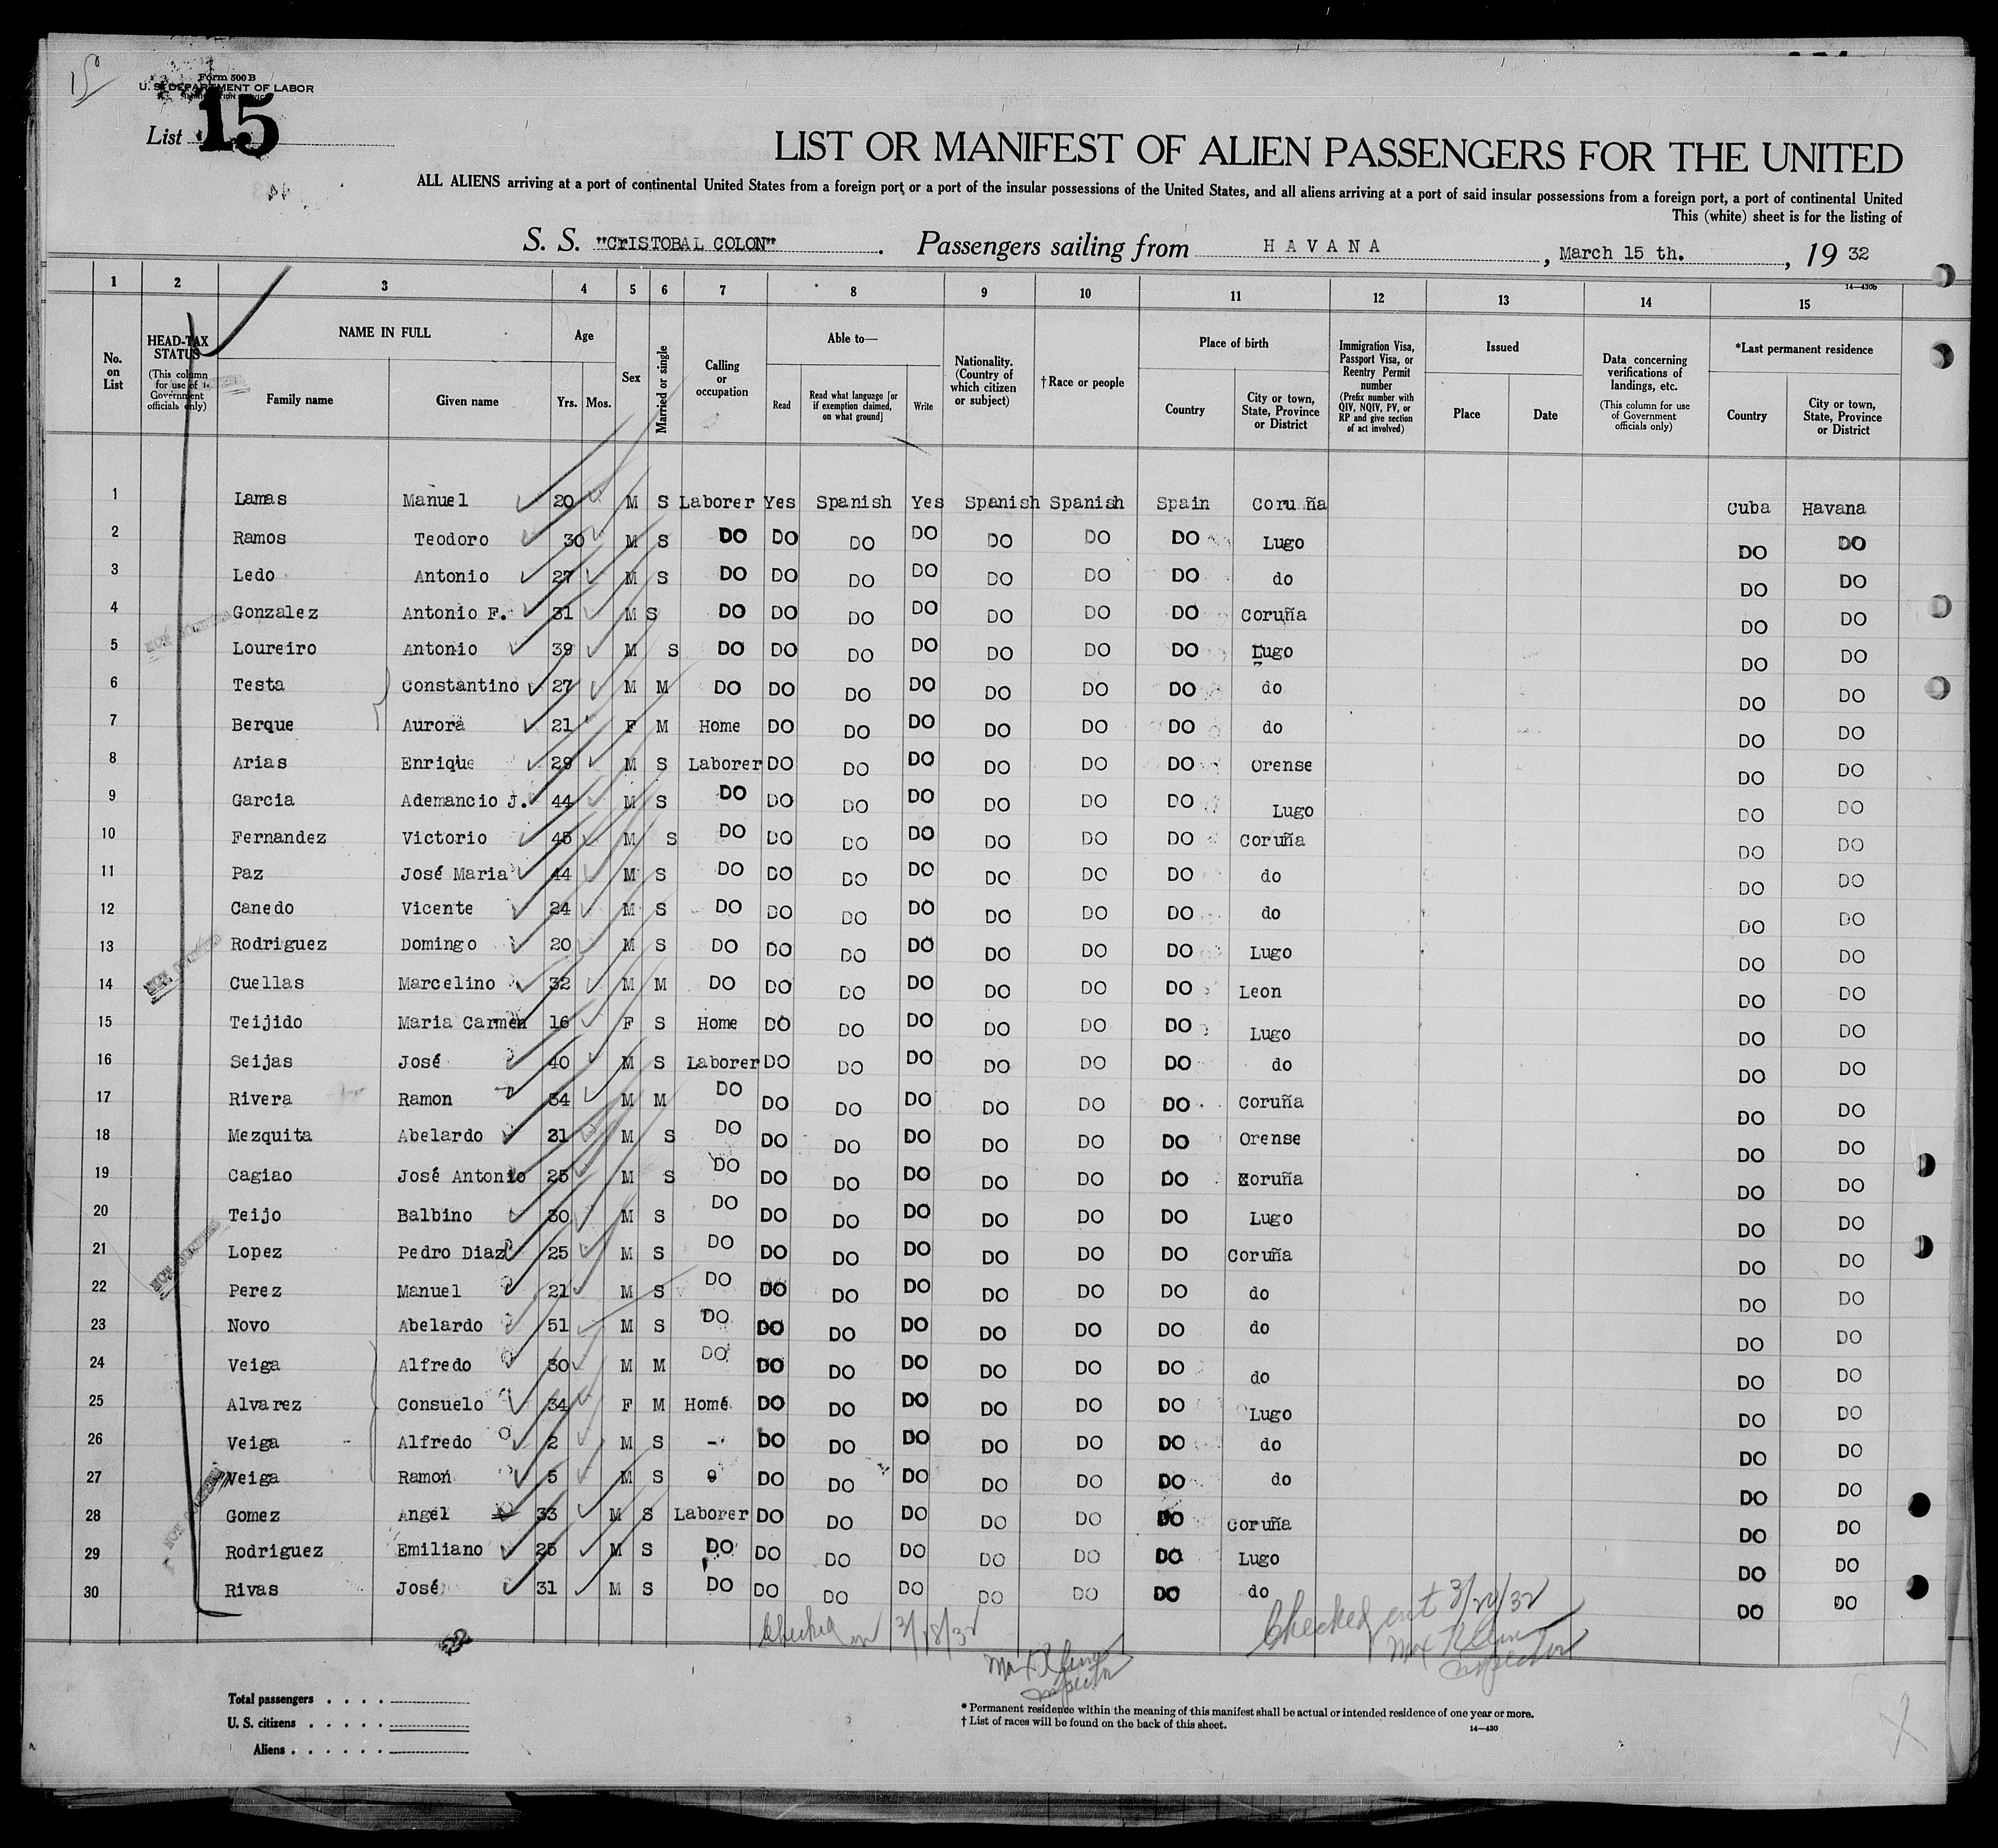 15
Form 500 B
U. S. DEPARTMENT OF LABOR
List 15
LIST OR MANIFEST OF ALIEN PASSENGERS FOR THE UNITED
ALL ALIENS arriving at a port of continental United States from a foreign port or a port of the insular possessions of the United States, and all aliens arriving at a port of said insular possessions from a foreign port, a port of continental United
This (white) sheet is for the listing of
S. S. "CrISTOBAL COLON". Passengers sailing from HAVANA, March 15 th., 19 32
1 2 3 4 5 6 7 8 9 10 11 12 13 14 15
14—430b
No. on List
HEAD-TAX STATUS (This column for use of Government officials only)
NAME IN FULL Family name Given name
Age Yrs. Mos.
Sex
Married or single
Calling or occupation
Able to— Read Read what language [or if exemption claimed, on what ground] Write
Nationality. (Country of which citizen or subject)
† Race or people
Place of birth Country City or town, State, Province or District
Immigration Visa, Passport Visa, or Reentry Permit number (Prefix number with QIV, NQIV, PV, or RP and give section of act involved)
Issued Place Date
Data concerning verifications of landings, etc. (This column for use of Government officials only)
*Last permanent residence Country City or town, State, Province or District
1 Lamas Manuel 20 M S Laborer Yes Spanish Yes Spanish Spanish Spain Coruña Cuba Havana
2 Ramos Teodoro 30 M S DO DO DO DO DO DO DO Lugo DO DO
3 Ledo Antonio 27 M S DO DO DO DO DO DO DO do DO DO
4 Gonzalez Antonio F. 31 M S DO DO DO DO DO DO DO Coruña DO DO
5 Loureiro Antonio 39 M S DO DO DO DO DO DO DO Lugo DO DO
6 Testa Constantino 27 M M DO DO DO DO DO DO DO do DO DO
7 Berque Aurora 21 F M Home DO DO DO DO DO DO do DO DO
8 Arias Enrique 29 M S Laborer DO DO DO DO DO DO Orense DO DO
9 Garcia Ademancio J. 44 M S DO DO DO DO DO DO DO Lugo DO DO
10 Fernandez Victorio 45 M S DO DO DO DO DO DO DO Coruña DO DO
11 Paz José Maria 44 M S DO DO DO DO DO DO DO do DO DO
12 Canedo Vicente 24 M S DO DO DO DO DO DO DO do DO DO
13 Rodriguez Domingo 20 M S DO DO DO DO DO DO DO Lugo DO DO
14 Cuellas Marcelino 32 M M DO DO DO DO DO DO DO Leon DO DO
15 Teijido Maria Carmen 16 F S Home DO DO DO DO DO DO Lugo DO DO
16 Seijas José 40 M S Laborer DO DO DO DO DO DO do DO DO
17 Rivera Ramon 34 M M DO DO DO DO DO DO DO Coruña DO DO
18 Mezquita Abelardo 31 M S DO DO DO DO DO DO DO Orense DO DO
19 Cagiao José Antonio 25 M S DO DO DO DO DO DO DO Coruña DO DO
20 Teijo Balbino 30 M S DO DO DO DO DO DO DO Lugo DO DO
21 Lopez Pedro Diaz 25 M S DO DO DO DO DO DO DO Coruña DO DO
22 Perez Manuel 21 M S DO DO DO DO DO DO DO do DO DO
23 Novo Abelardo 51 M S DO DO DO DO DO DO DO do DO DO
24 Veiga Alfredo 30 M M DO DO DO DO DO DO DO do DO DO
25 Alvarez Consuelo 34 F M Home DO DO DO DO DO DO Lugo DO DO
26 Veiga Alfredo 2 M S - DO DO DO DO DO DO do DO DO
27 Veiga Ramon 5 M S DO DO DO DO DO DO do DO DO
28 Gomez Angel 33 M S Laborer DO DO DO DO DO DO Coruña DO DO
29 Rodriguez Emiliano 25 M S DO DO DO DO DO DO DO Lugo DO DO
30 Rivas José 31 M S DO DO DO DO DO DO DO do DO DO
Checked in 3/18/32
Inspector
Checked out 3/20/32
Inspector
Total passengers . . . .
U. S. citizens . . . . .
Aliens . . . . . .
* Permanent residence within the meaning of this manifest shall be actual or intended residence of one year or more.
† List of races will be found on the back of this sheet.
14—430